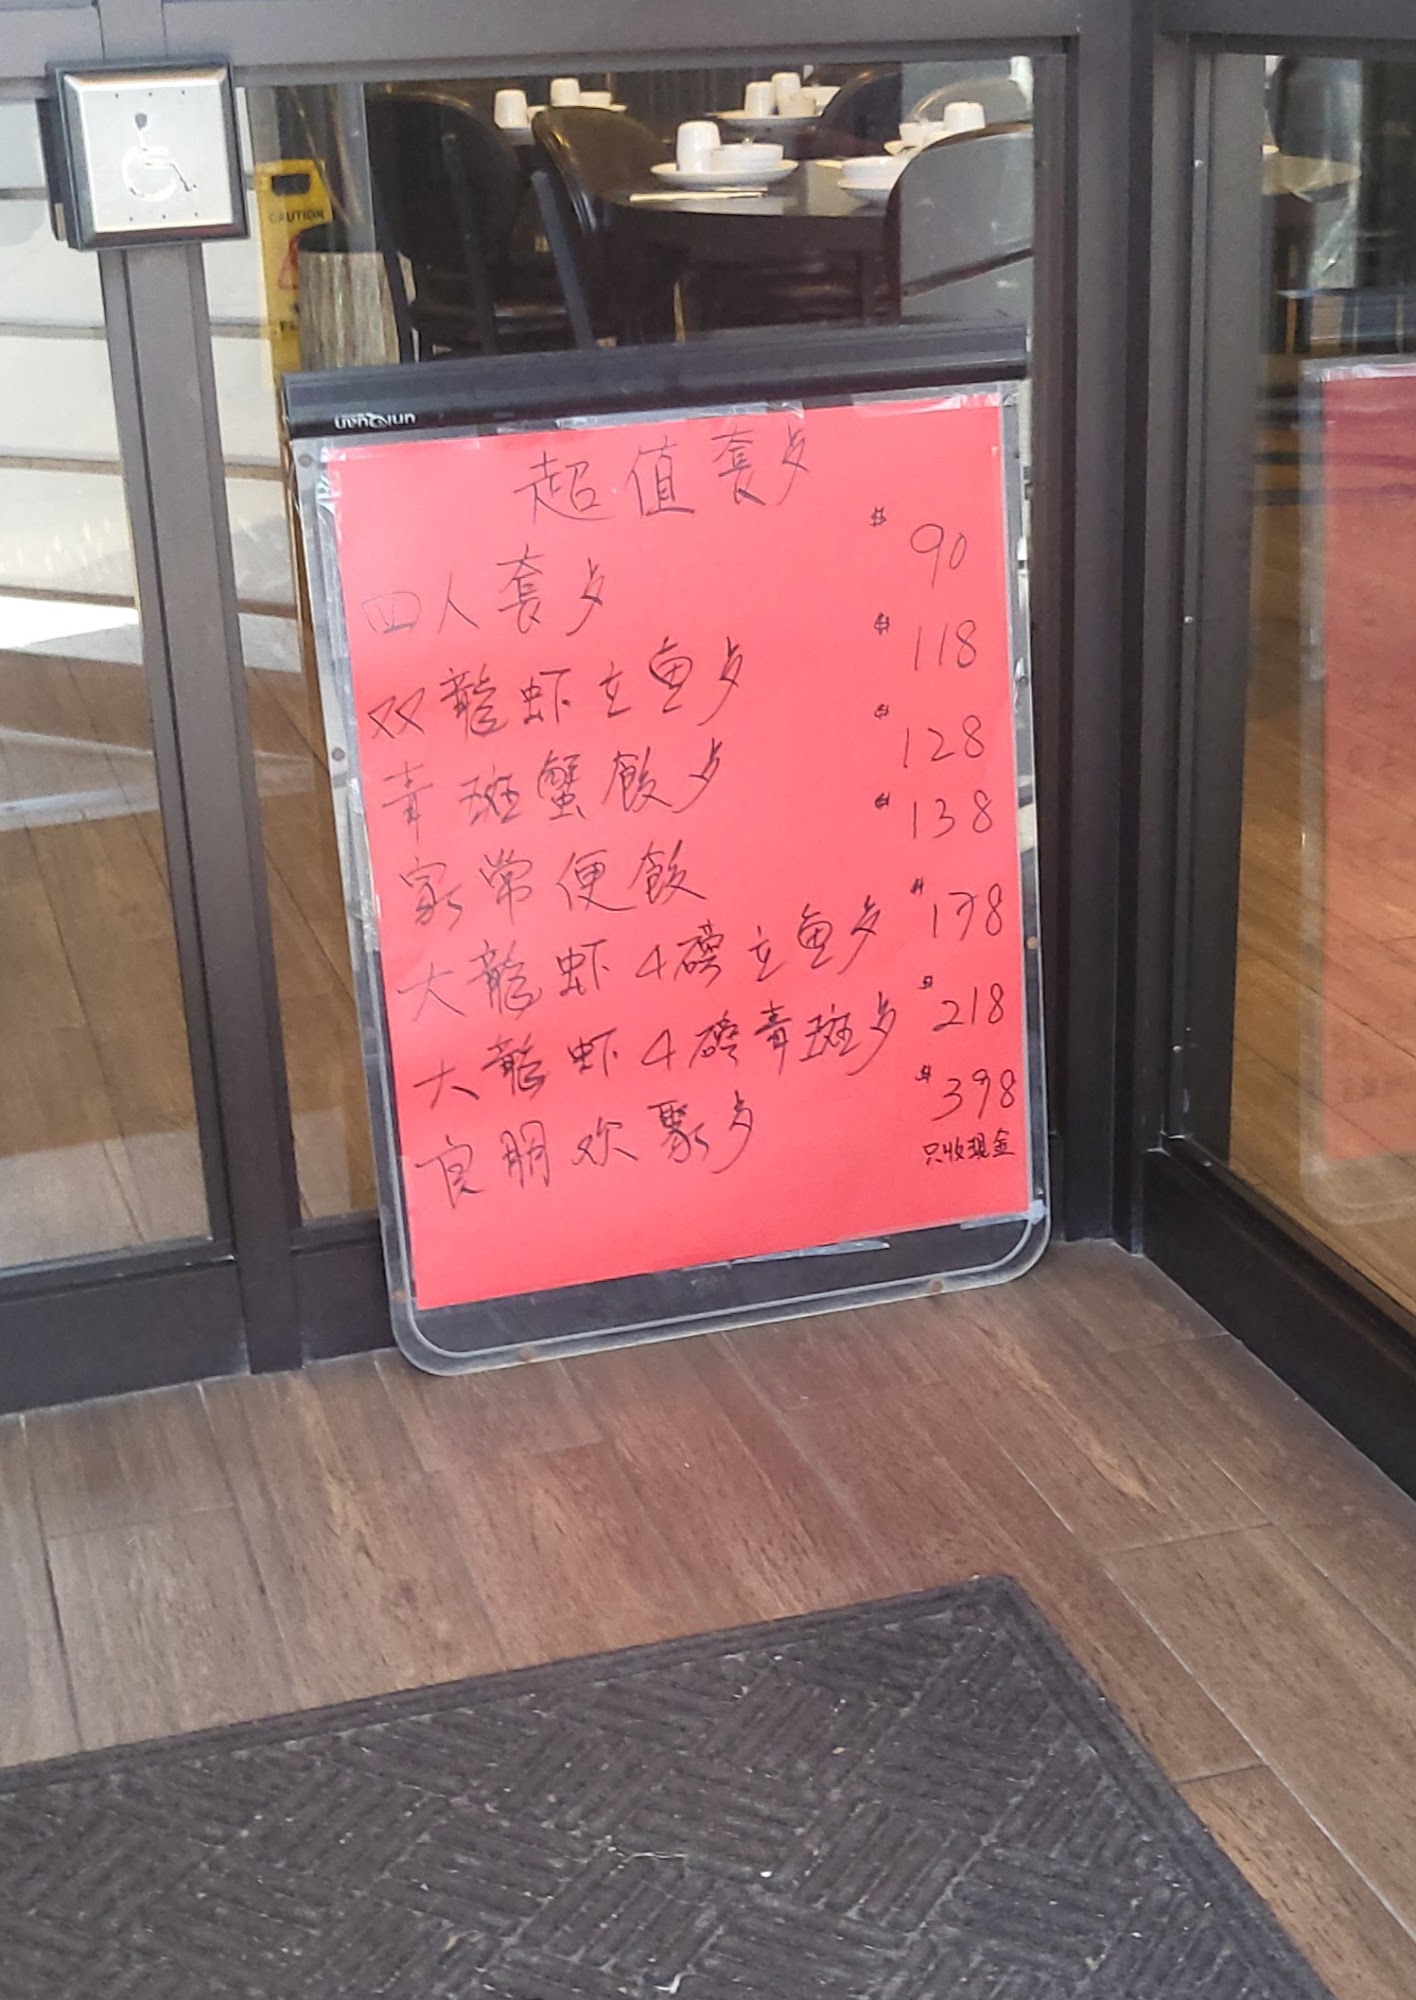 CAUTION
超值套歺
四人套歺 $90
双龍虾立鱼歺 $118
青斑蟹飯歺 $128
家常便飯 $138
大龍虾4磅立鱼歺 $198
大龍虾4磅青斑歺 $218
良朋欢聚歺 $398
只收現金